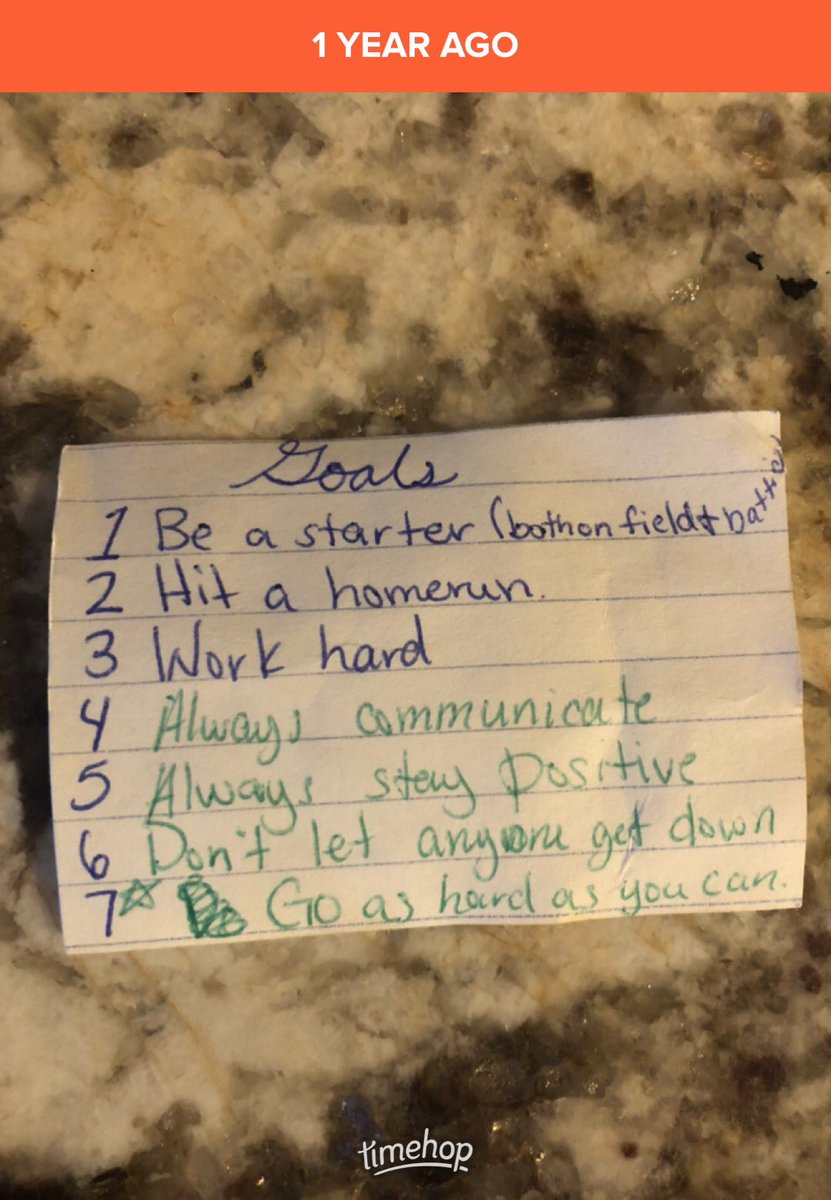 1 YEAR AGO
Goals
1 Be a starter (both on field + batting
2 Hit a homerun.
3 Work hard
4 Always communicate
5 Always stay positive
6 Don't let anyone get down
7 Go as hard as you can.
timehop